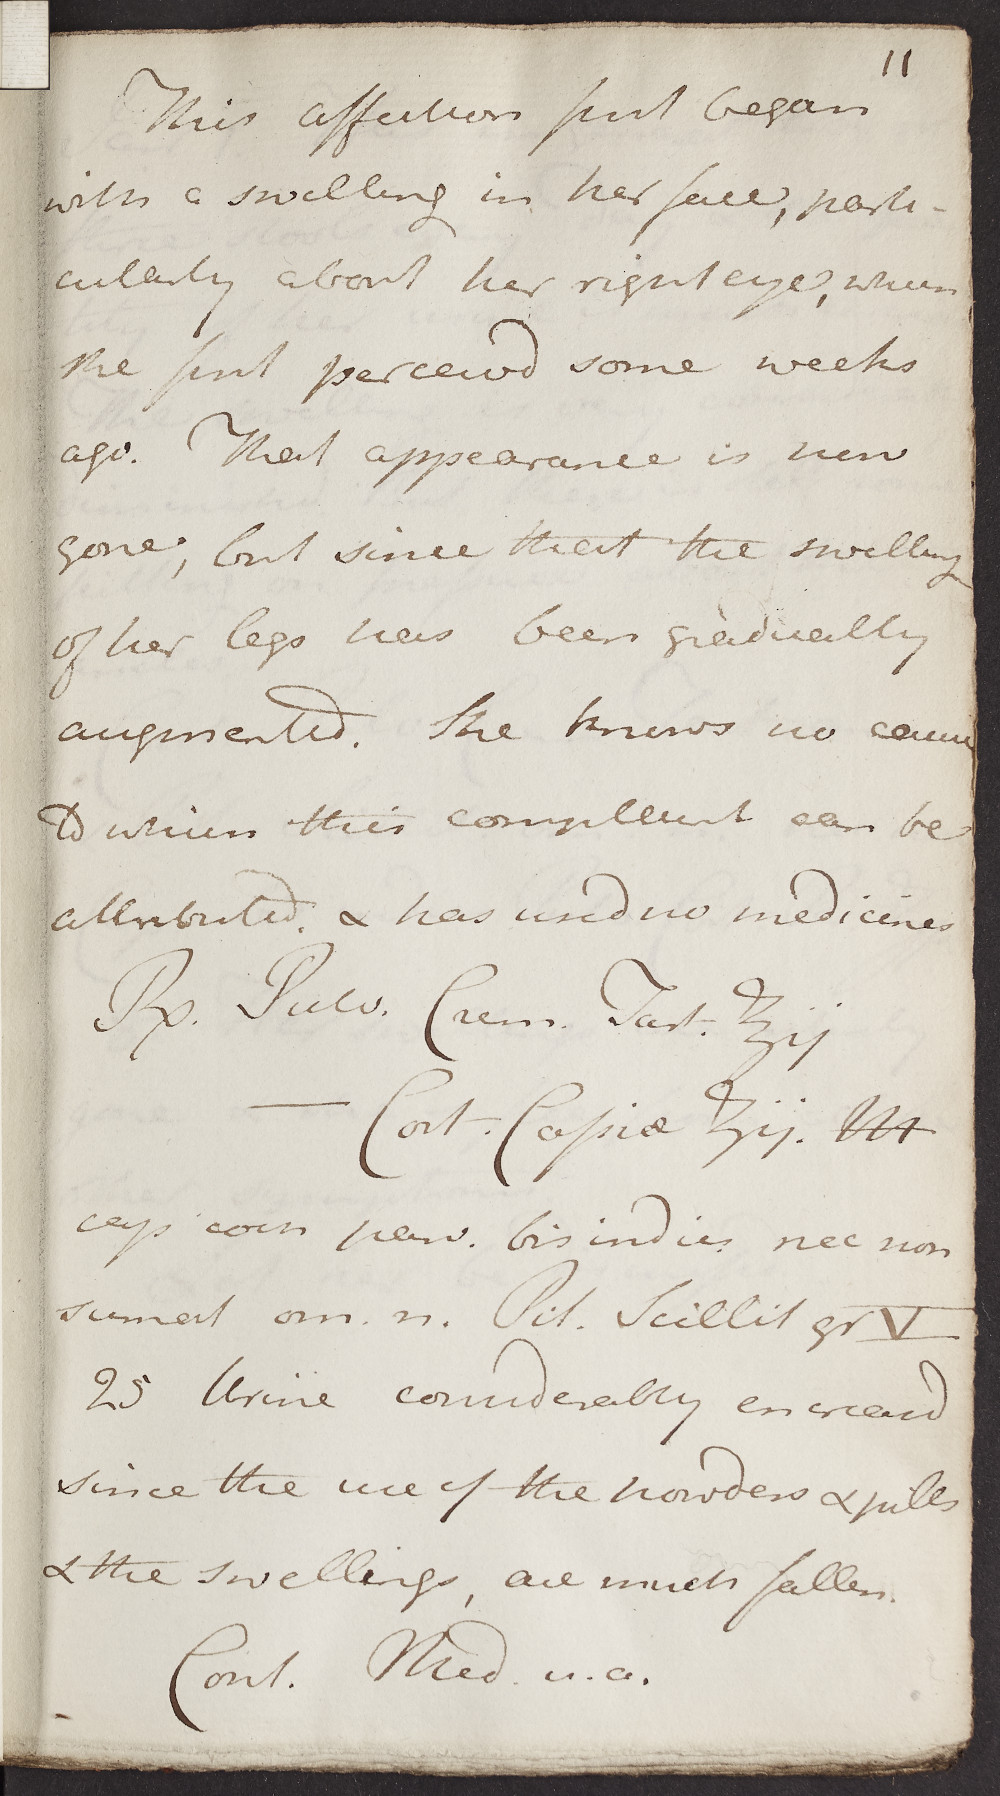 11
This affection first began
with a swelling in her face, parti-
cularly about her right eye, which
she first perceivd some weeks
ago. That appearance is now
gone, but since that the swelling
of her legs has been gradually
augmented. She knows no cause
to which this complaint can be
attributed. & has used no medicines
Rp. Pulv. Crem. Tart. ℥ij
— Cort. Cassiæ ʒij. M
cap coch parv. bis indies nec non
sumat om. n. Pil. Scillit gr V
25 Urine considerably encreasd
since the use of the powders & pills
& the swellings, are much fallen.
Cont. Med. u.a.